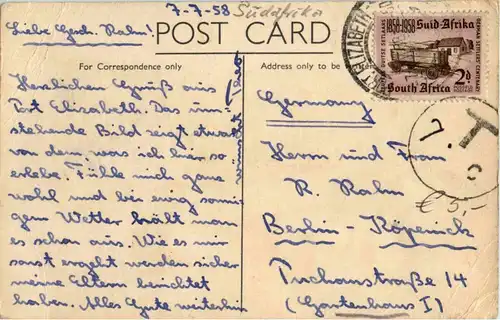 7-7-58 Südafrika
Liebe Gesch. Rahm!
POST CARD
For Correspondence only
Address only to be
PORT ELIZABETH
1858-1958 Suid-Afrika
DUITSE SETLAARS
GERMAN SETTLERS CENTENARY
2D
South Africa
T
7.
c
€ 5,-
Herzlichen Gruß aus
Port Elizabeth. Das um-
stehende Bild zeigt etwas
von dem, was ich hier so
erlebe. Fühle mich ganz
wohl und bei ewig sonni-
gem Wetter hält man
es schon aus. Wie es mir
sonst ergeht werden sicher
meine Eltern berichtet
haben. Alles Gute weiterhin
wünscht
Germany
Herrn und Frau
R. Rahm
Berlin-Köpenick
Puchanstraße 14
(Gartenhaus I)